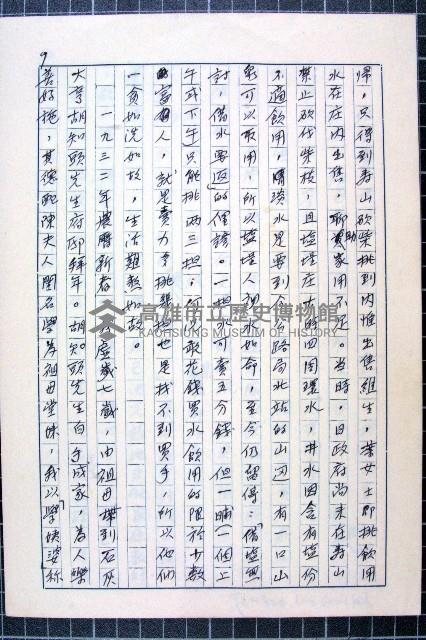 9
歸，只得到壽山砍柴挑到內惟出售維生，葉女士即挑飲用
水在庄內出售，聊助家用不足。當時，日政府尚未在壽山
禁止砍伐柴枝，且塩埕在大時四圍環水，井水因含有塩份
不適飲用，清洗水是要到公路局北站的山邊，有一口山
泉可以取用，所以塩埕人視水如命，至今仍留得：「借塩無
討，借水要返」的俚諺。一担水可賣五分錢，但一晡一個上
午或下午只能挑兩三担，何況敢花錢買水飲用的限於少數
富有人，就是賣力多挑幾担也是找不到買手，所以他們
一貧如洗如故，生活艱熬如故。
一九三二年農曆新春，虛歲七歲，由祖母帶到石灰
大亨胡知頭先生府邸拜年。胡知頭先生白手成家，為人樂
善好施，其德配陳夫人閨名學為祖母堂妹，我以「學姨婆」稱
高雄市立歷史博物館
KAOHSIUNG MUSEUM OF HISTORY